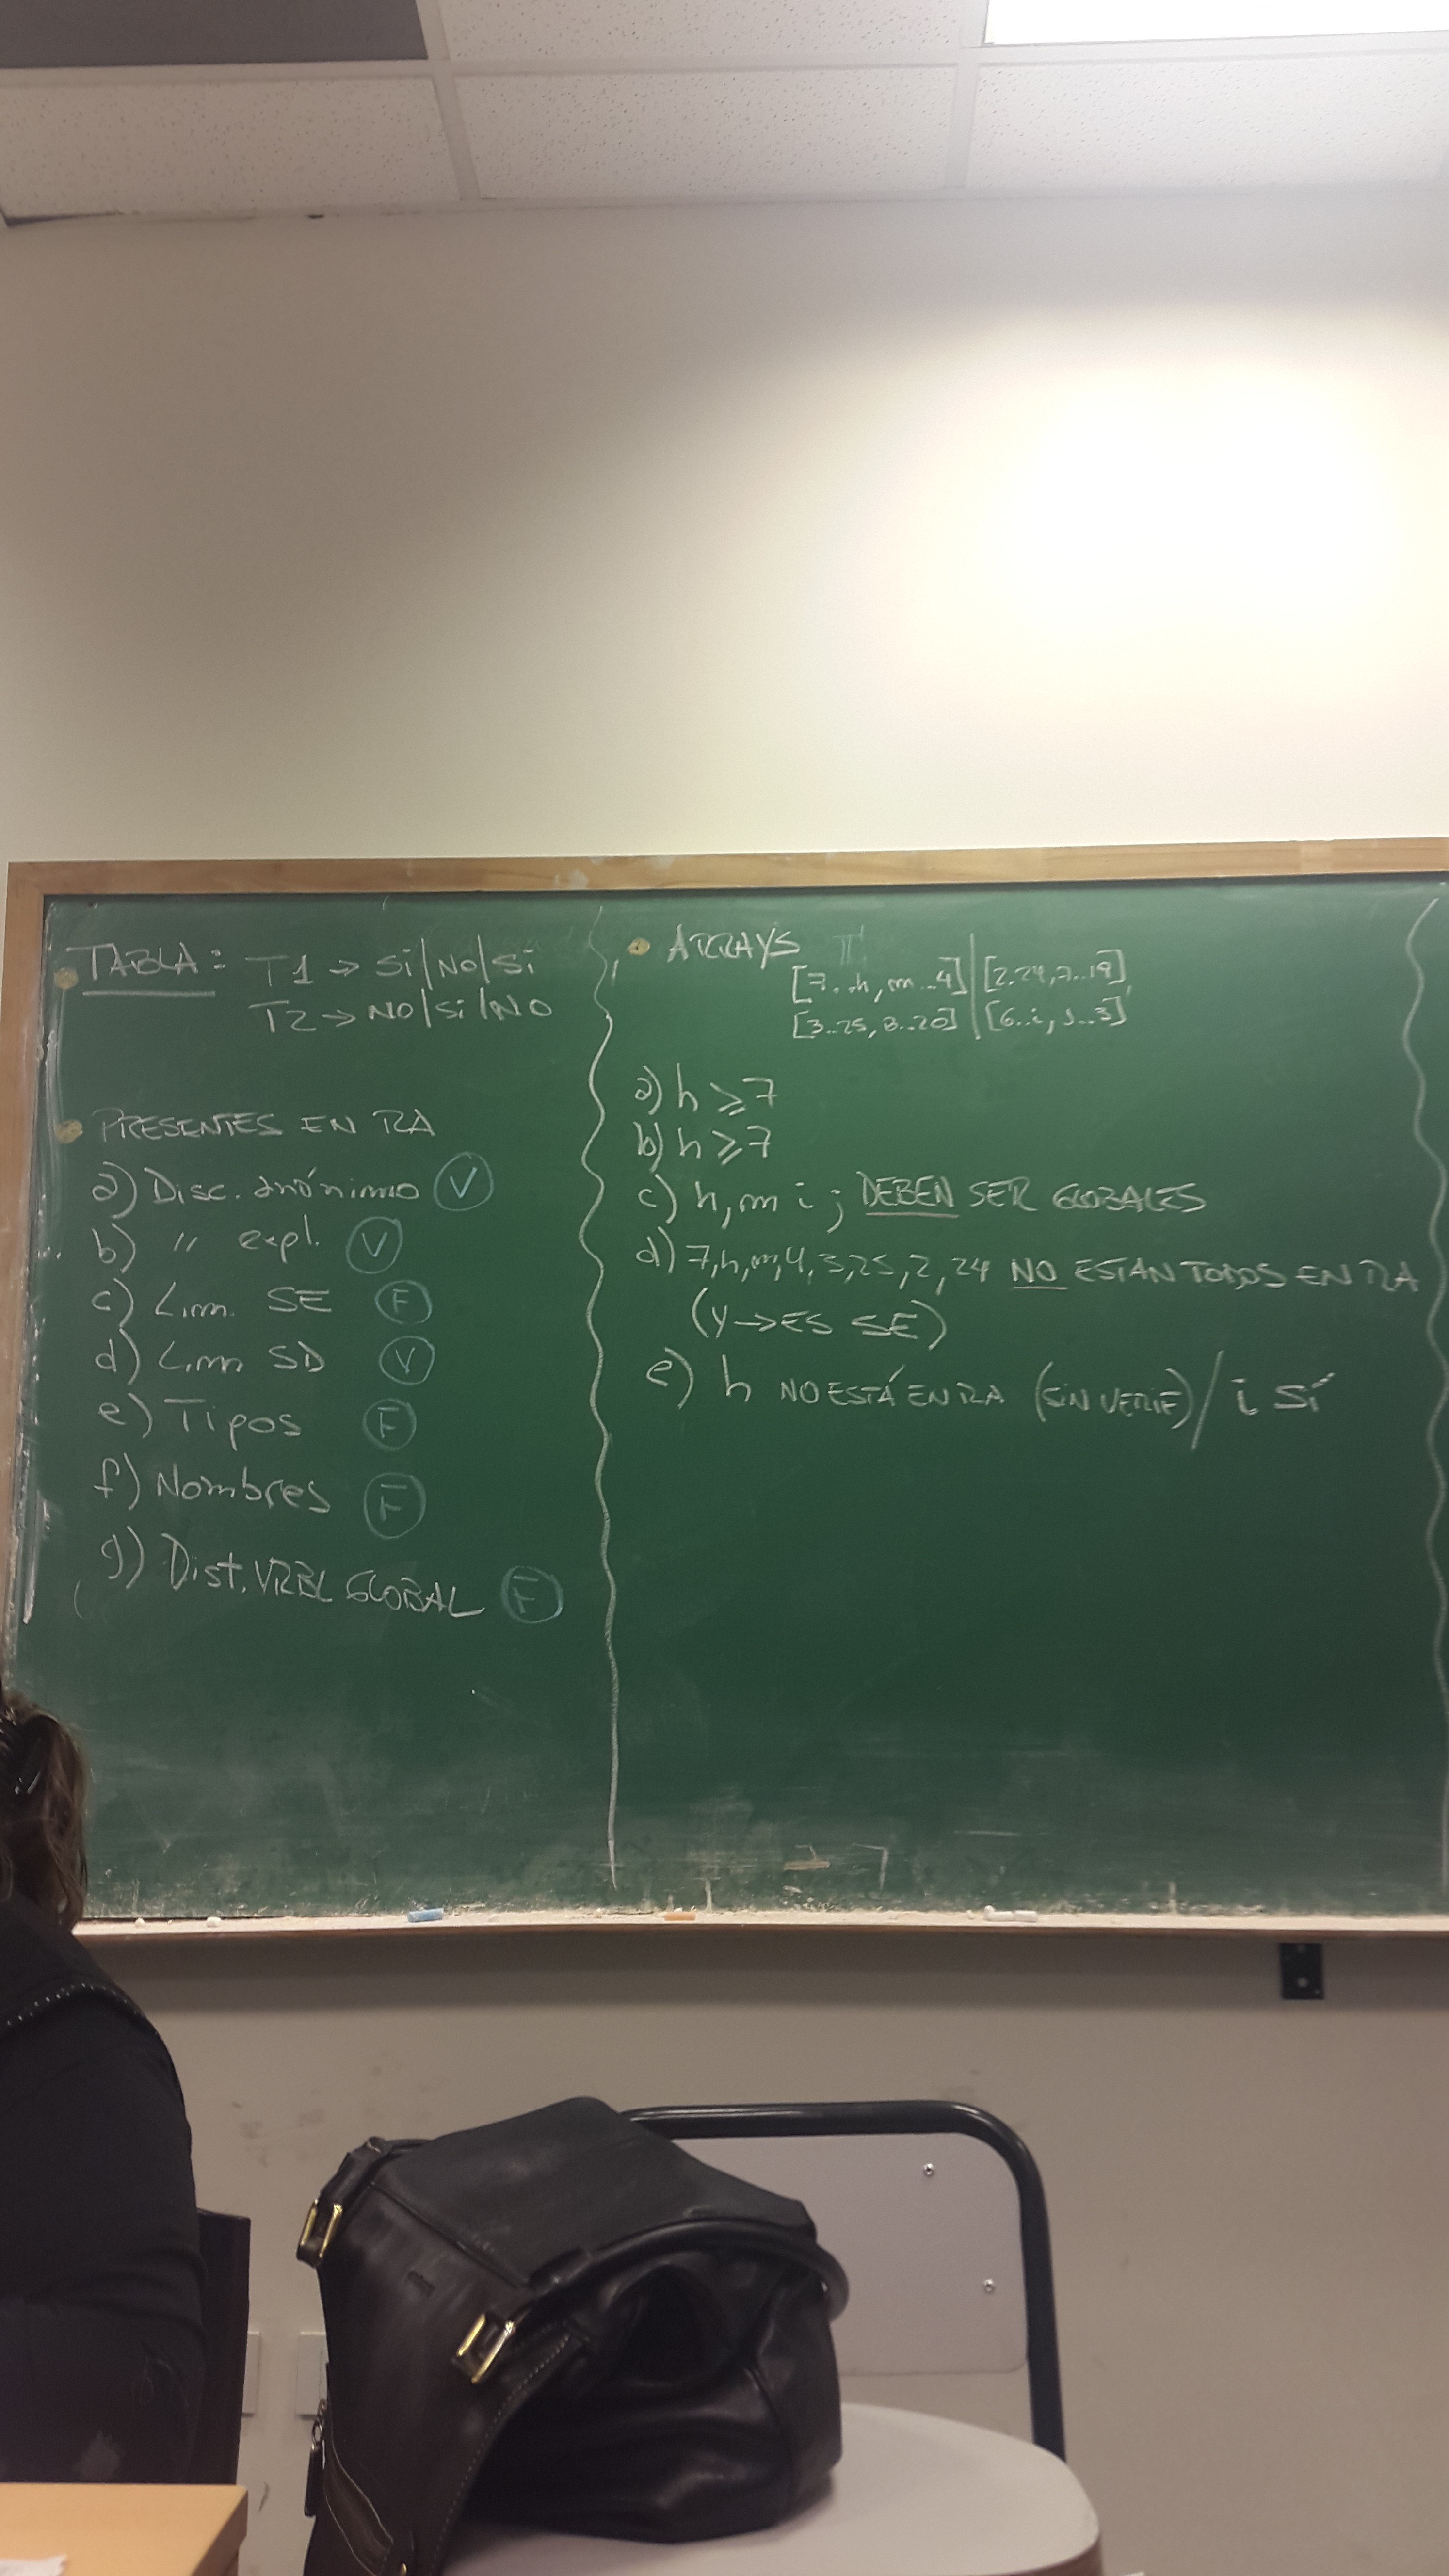 TABLA: T1 → Si/NO/Si
T2 → NO/Si/NO
PRESENTES EN RA
a) Disc. anónimo V
b) " expl. V
c) Lim. SE F
d) Lim SD V
e) Tipos F
f) Nombres F
g) Dist. VRBL GLOBAL F
ARRAYS
[7..h, m..4] [2..24, 7..19],
[3..25, 8..20] [6..i, j..3]
a) h ≥ 7
b) h ≥ 7
c) h, m i j DEBEN SER GLOBALES
d) 7,h,m,4,3,25,2,24 NO ESTAN TODOS EN RA
(Y → ES SE)
e) h NO ESTÁ EN RA (SIN VERIF) / i SÍ